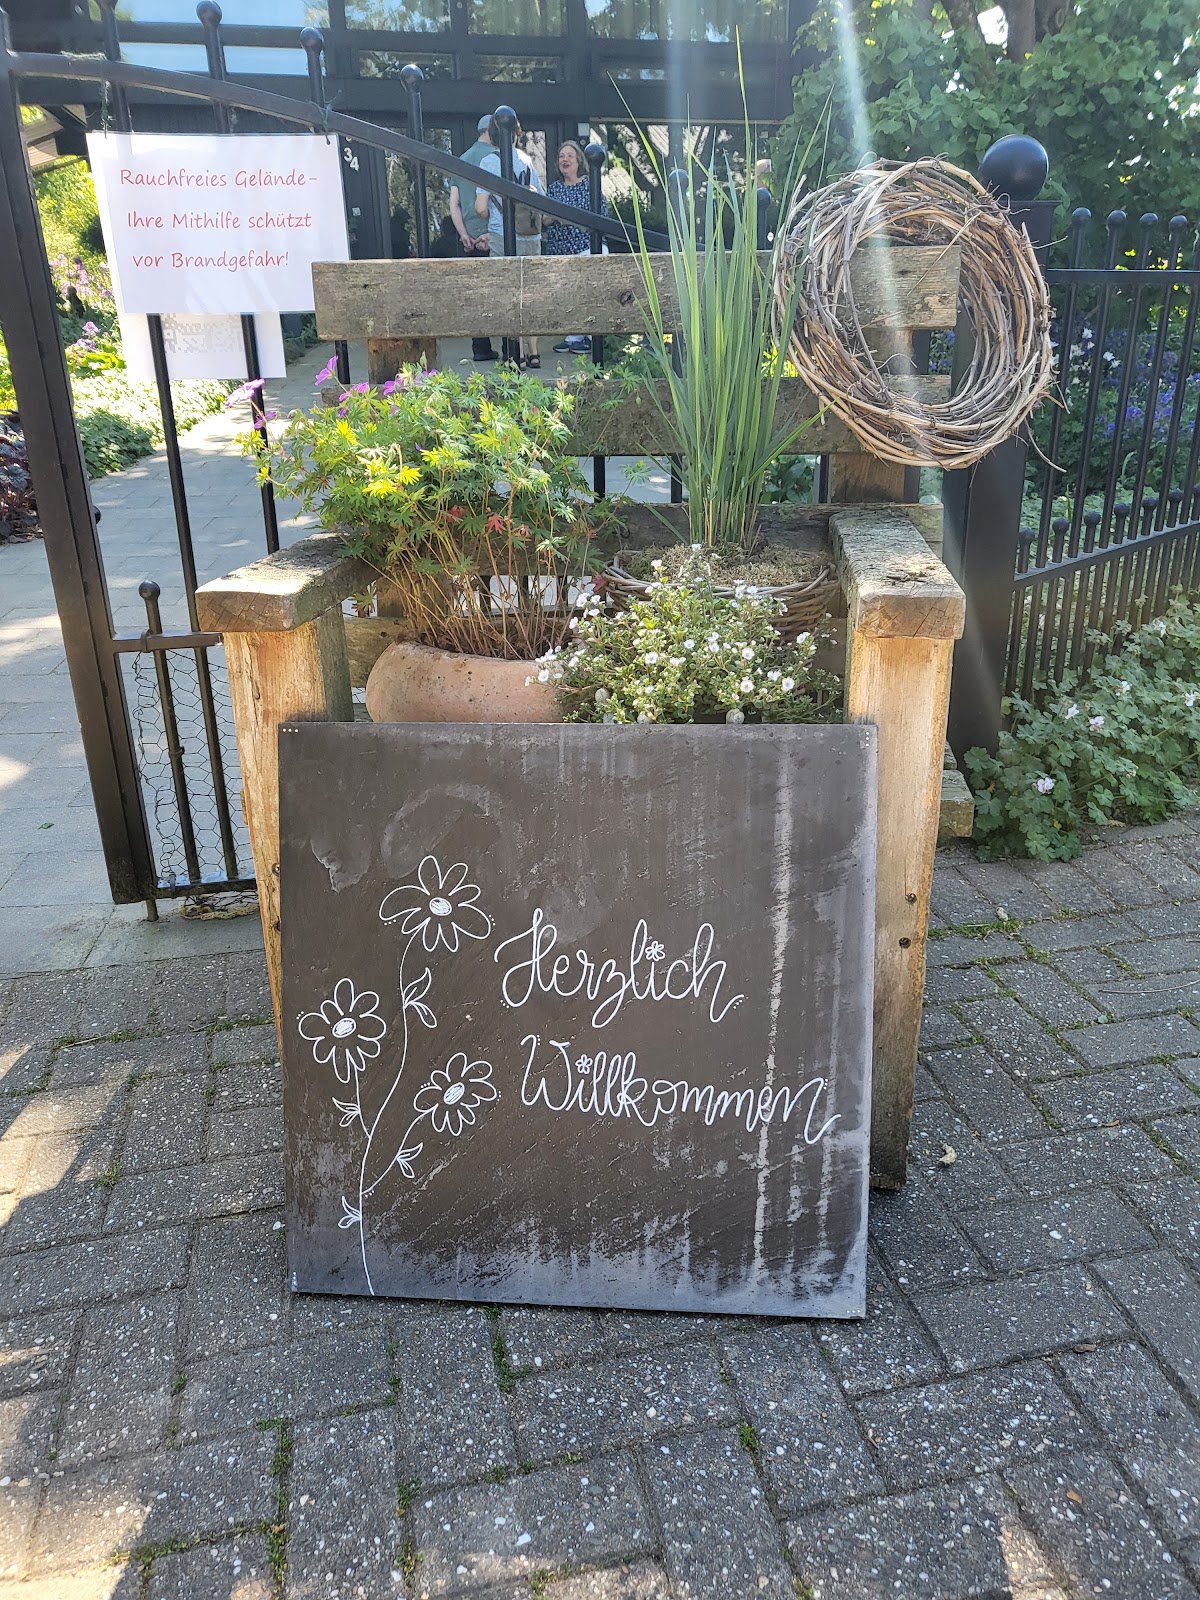 Rauchfreies Gelände-
Ihre Mithilfe schützt
vor Brandgefahr!
34
Herzlich
Willkommen